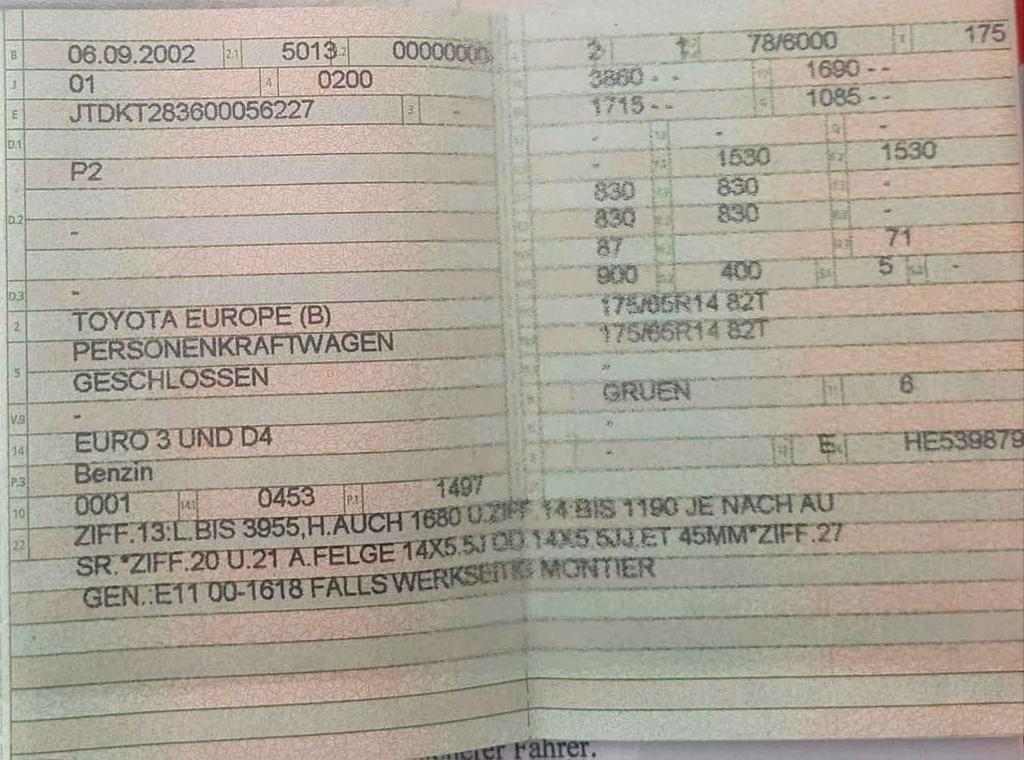 B 06.09.2002 2.1 5013 2.2 00000000 2 1 78/6000 T 175
J 01 4 0200 3860 - - 1690 - -
E JTDKT283600056227 3 - 1715 - - G 1085 - -
D.1 - - -
P2 - 1530 1530
830 830 -
D.2 - 830 830 -
87 71
D.3 - 900 400 5 -
2 TOYOTA EUROPE (B) 175/65R14 82T
PERSONENKRAFTWAGEN 175/65R14 82T
5 GESCHLOSSEN -
V.9 - GRUEN 6
14 EURO 3 UND D4 -
P.3 Benzin - E HE539879
10 0001 14.1 0453 P.1 1497
22 ZIFF.13:L.BIS 3955,H.AUCH 1680 U.ZIFF.14 BIS 1190 JE NACH AU
SR.*ZIFF.20 U.21 A.FELGE 14X5.5J OD 14X5.5JJ,ET 45MM*ZIFF.27
GEN.:E11 00-1618 FALLS WERKSEITIG MONTIER
Fahrer.